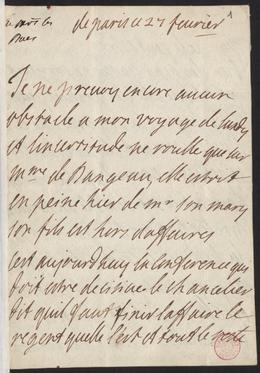 de paris ce 27 fevrier
Je ne prevoy encore aucun
obstacle a mon voyage de lundy
et lincertitude ne roulle que sur
mme de Dangeau, elle estoit
en peine hier de mr son mary
son fils est hors daffaires
cest aujourdhuy la conference qui
doit estre decisive le chancelier
dit quil faut finir laffaire le
regent quelle lest et tout le reste